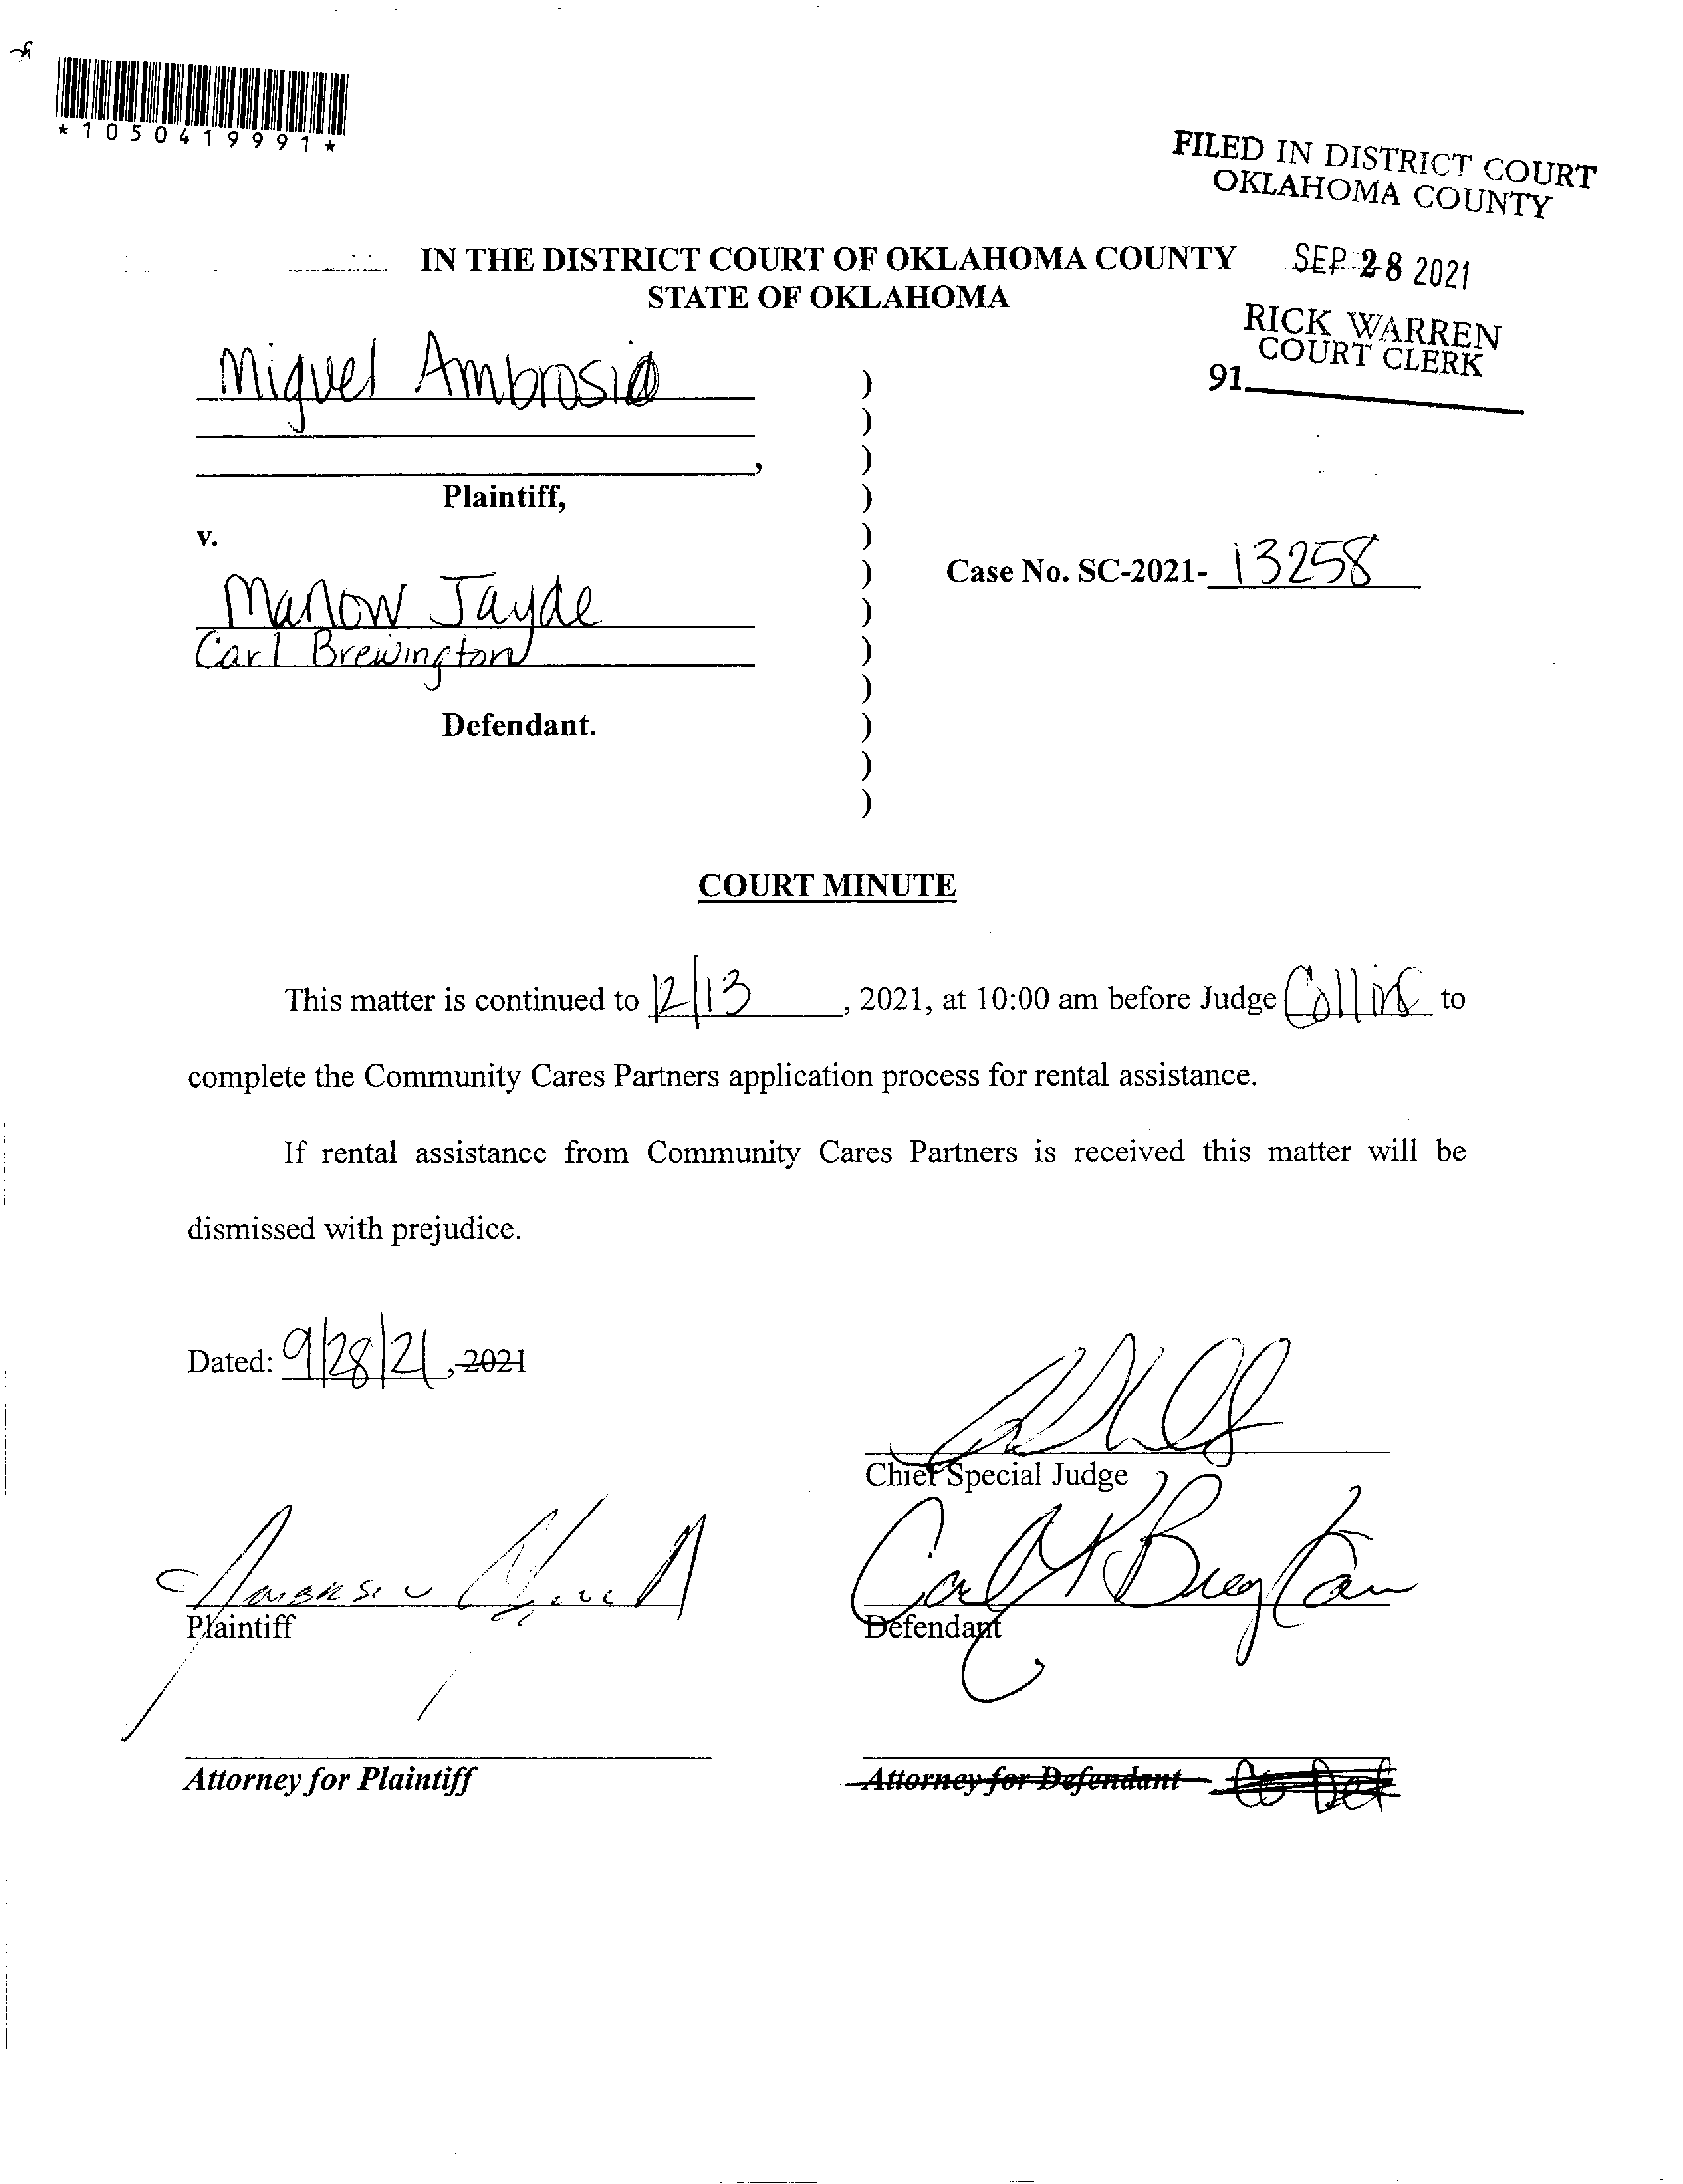 *1050419991*
FILED IN DISTRICT COURT
OKLAHOMA COUNTY
IN THE DISTRICT COURT OF OKLAHOMA COUNTY
SEP 28 2021
STATE OF OKLAHOMA
RICK WARREN
COURT CLERK
91
Miguel Ambrosio
)
)
, )
Plaintiff, )
v. )
Case No. SC-2021- 13258 )
Jayde )
Carl Brewington )
)
Defendant. )
)
)
COURT MINUTE
This matter is continued to 12/13, 2021, at 10:00 am before Judge Collins to
complete the Community Cares Partners application process for rental assistance.
If rental assistance from Community Cares Partners is received this matter will be
dismissed with prejudice.
Dated: 9/28/21, 2021
Chief Special Judge
Plaintiff
Defendant
Attorney for Plaintiff
Attorney for Defendant Co Def